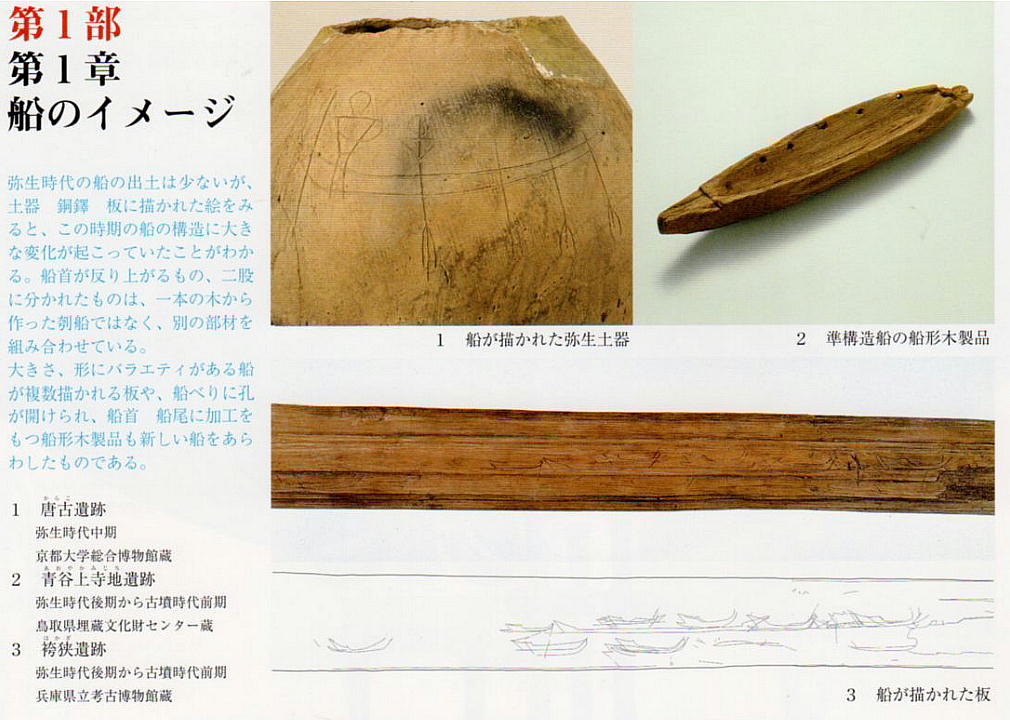 第1部
第1章
船のイメージ
弥生時代の船の出土は少ないが、
土器 銅鐸 板に描かれた絵をみ
ると、この時期の船の構造に大き
な変化が起こっていたことがわか
る。船首が反り上がるもの、二股
に分かれたものは、一本の木から
作った刳船ではなく、別の部材を
組み合わせている。
大きさ、形にバラエティがある船
が複数描かれる板や、船べりに孔
が開けられ、船首 船尾に加工を
もつ船形木製品も新しい船をあら
わしたものである。
1 船が描かれた弥生土器
2 準構造船の船形木製品
からこ
1 唐古遺跡
弥生時代中期
京都大学総合博物館蔵
あおやかみじち
2 青谷上寺地遺跡
弥生時代後期から古墳時代前期
鳥取県埋蔵文化財センター蔵
はかざ
3 袴狭遺跡
弥生時代後期から古墳時代前期
兵庫県立考古博物館蔵
3 船が描かれた板